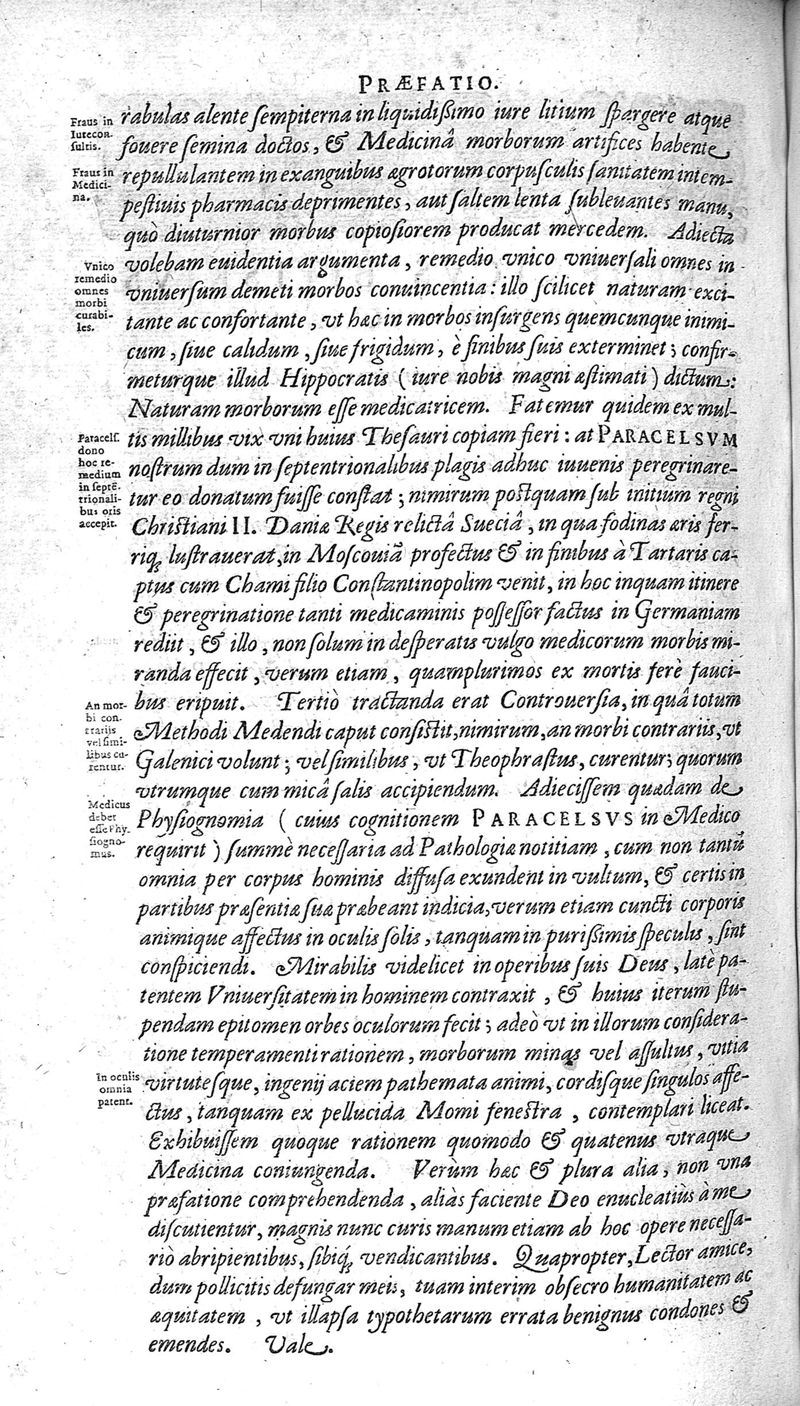 PRÆFATIO.
Fraus in
Iurecon-
sultis.
rabulas alente sempiterna in liquidißimo iure litium spargere atque
fouere semina doctos, & Medicinâ morborum artifices habente,
Fraus in
Medici-
na.
repullulantem in exanguibus ægrotorum corpusculis sanitatem intem-
pestiuis pharmacis deprimentes, aut saltem lenta subleuantes manu,
quò diuturnior morbus copiosiorem producat mercedem. Adiecta
Vnico
remedio
omnes
morbi
curabi-
les.
volebam euidentia argumenta, remedio vnico vniuersali omnes in
vniuersum demeti morbos conuincentia: illo scilicet naturam exci-
tante ac confortante, vt hæc in morbos insurgens quemcunque inimi-
cum, siue calidum, siue frigidum, è finibus suis exterminet; confir-
meturque illud Hippocratis (iure nobis magni æstimati) dictum:
Naturam morborum esse medicatricem. Fatemur quidem ex mul-
Paracels.
dono
hoc re-
medium
in septē-
trionali-
bus oris
accepit.
tis millibus vix vni huius Thesauri copiam fieri: at PARACELSVM
nostrum dum in septentrionalibus plagis adhuc iuuenis peregrinare-
tur eo donatum fuisse constat; nimirum postquam sub initium regni
Christiani II. Daniæ Regis relictâ Sueciâ, in qua fodinas æris fer-
riq; lustrauerat, in Moscouiā profectus & in finibus à Tartaris ca-
ptus cum Chami filio Constantinopolim venit, in hoc inquam itinere
& peregrinatione tanti medicaminis possessor factus in Germaniam
rediit, & illo, non solum in desperatis vulgo medicorum morbis mi-
randa effecit, verum etiam, quamplurimos ex mortis ferè fauci-
An mor-
bi con-
trariis
vel simi-
libus cu-
rentur.
bus eripuit. Tertiò tractanda erat Controuersia, in quâ totum
Methodi Medendi caput consistit, nimirum, an morbi contrariis, vt
Galenici volunt; vel similibus, vt Theophrastus, curentur; quorum
vtrumque cum micâ salis accipiendum. Adiecissem quædam de
Medicus
debet
esse Phy-
siogno-
mus.
Physiognomia (cuius cognitionem PARACELSVS in Medico
requirit) summè necessaria ad Pathologiæ notitiam, cum non tantū
omnia per corpus hominis diffusa exundent in vultum, & certis in
partibus præsentiæ suæ præbeant indicia, verum etiam cuncti corporis
animique affectus in oculis solis, tanquam in purißimis speculis, sint
conspiciendi. Mirabilis videlicet in operibus suis Deus, latè pa-
tentem Vniuersitatem in hominem contraxit, & huius iterum stu-
pendam epitomen orbes oculorum fecit; adeò vt in illorum considera-
tione temperamenti rationem, morborum minas vel assultus, vitia
In oculis
omnia
patent.
virtutesque, ingenij aciem pathemata animi, cordisque singulos affe-
ctus, tanquam ex pellucida Momi fenestra, contemplari liceat.
Exhibuissem quoque rationem quomodo & quatenus vtraque
Medicina coniungenda. Verùm hæc & plura alia, non vna
præfatione comprehendenda, aliàs faciente Deo enucleatiùs à me
discutientur, magnis nunc curis manum etiam ab hoc opere necessa-
riò abripientibus, sibiq; vendicantibus. Quapropter, Lector amice,
dum pollicitis defungar meis, tuam interim obsecro humanitatem ac
æquitatem, vt illapsa typothetarum errata benignus condones &
emendes. Vale.